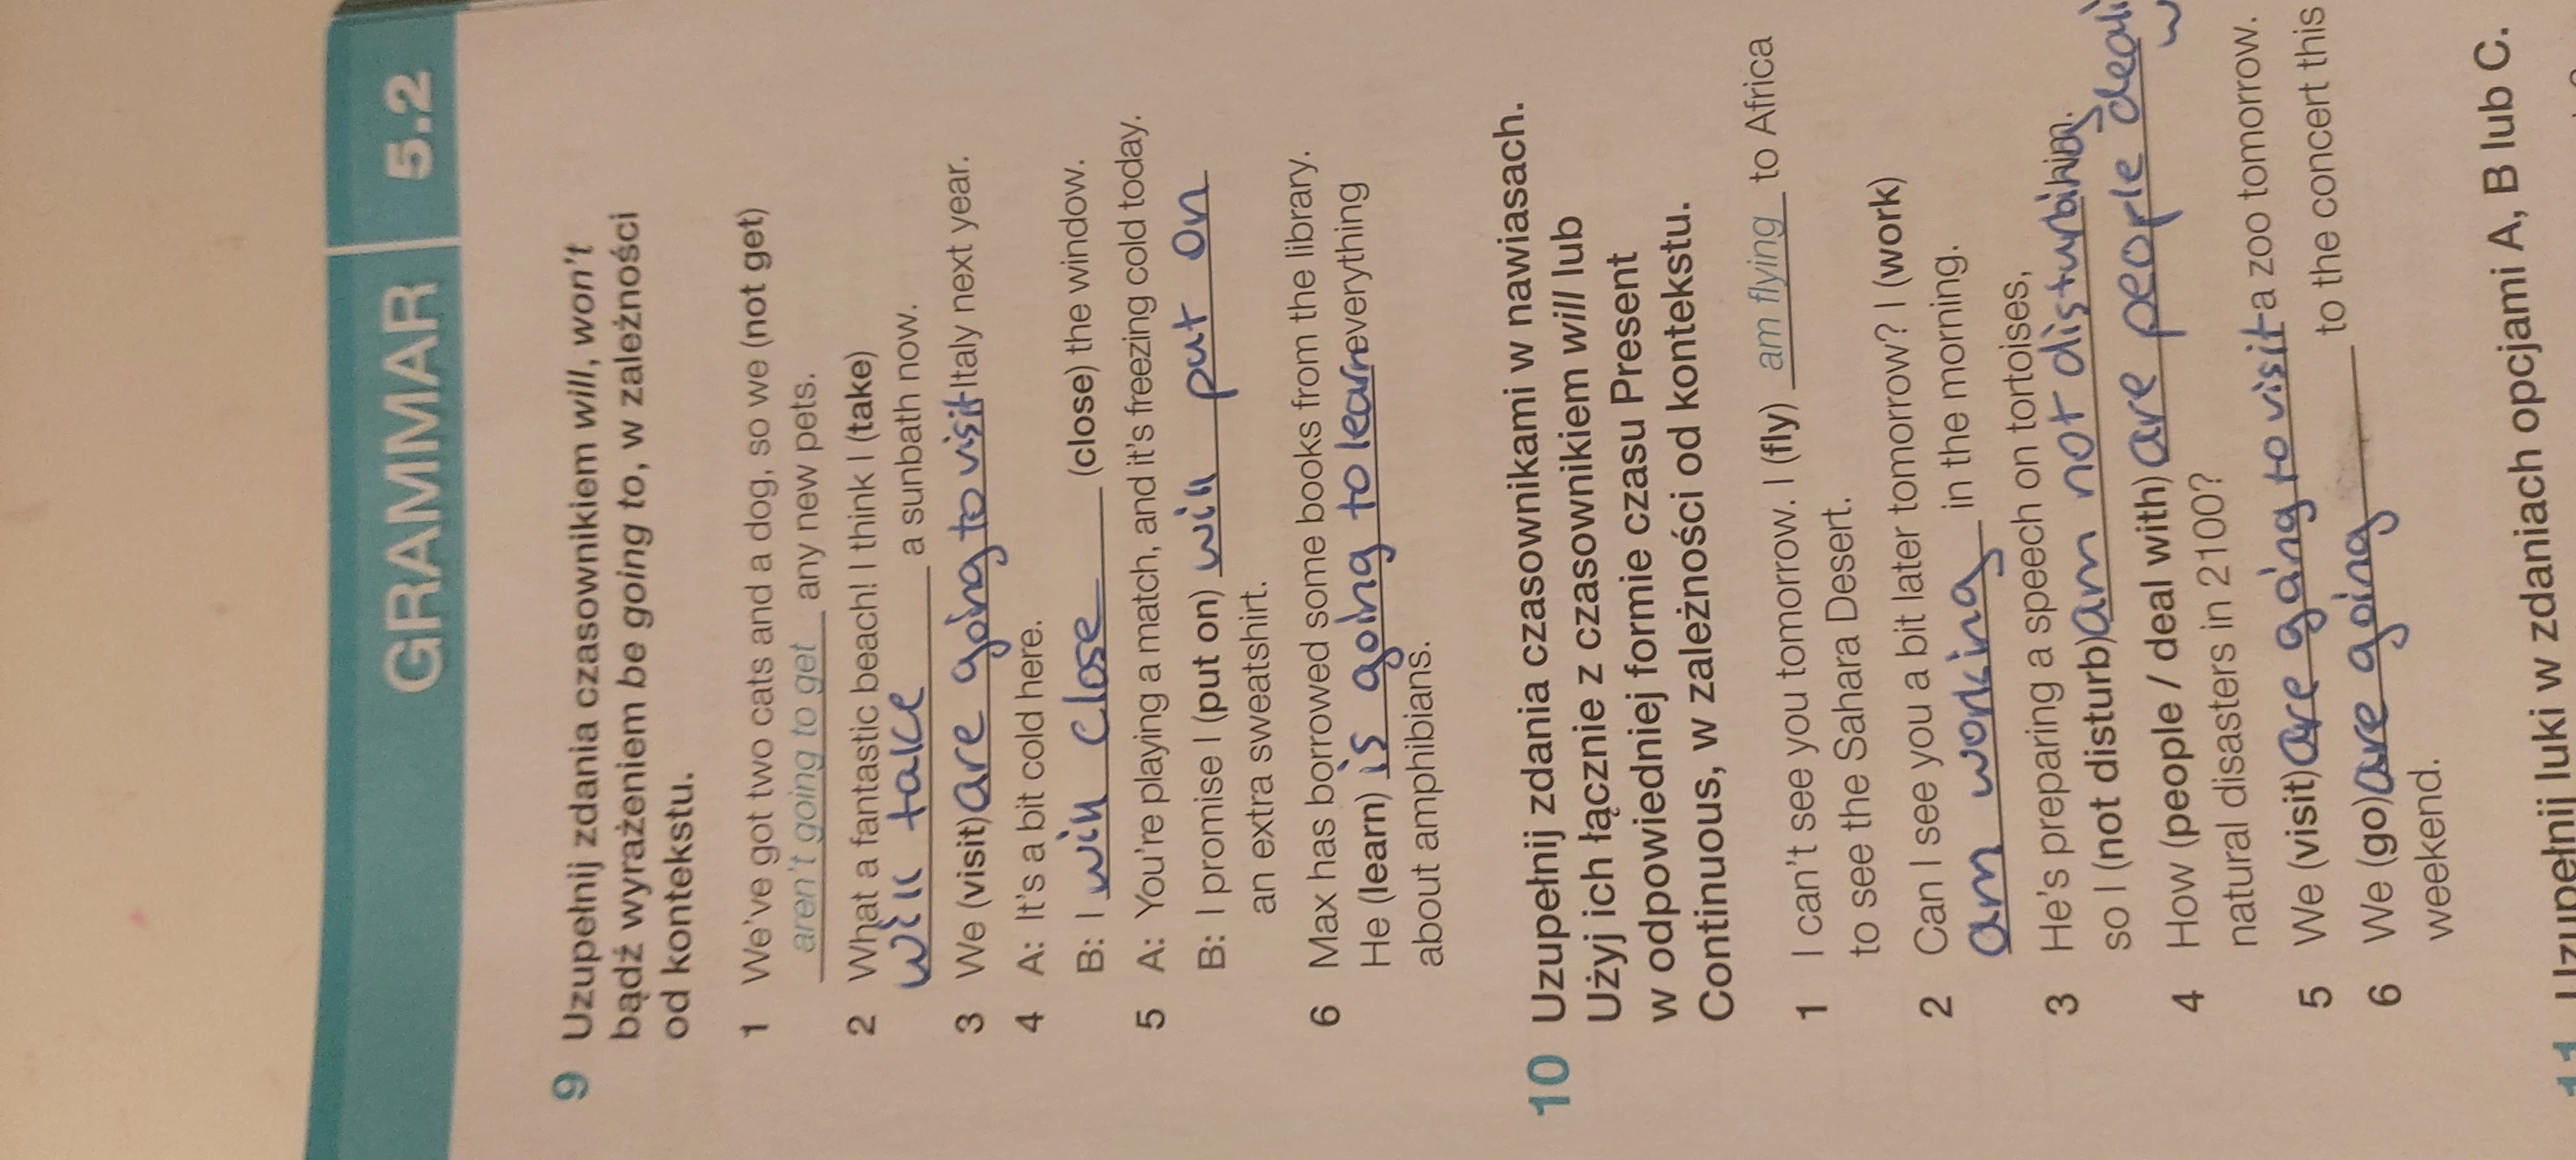 GRAMMAR 5.2
9 Uzupełnij zdania czasownikiem will, won't
bądź wyrażeniem be going to, w zależności
od kontekstu.
1 We've got two cats and a dog, so we (not get)
aren't going to get any new pets.
2 What a fantastic beach! I think I (take)
will take a sunbath now.
3 We (visit) are going to visit Italy next year.
4 A: It's a bit cold here.
B: I will close (close) the window.
5 A: You're playing a match, and it's freezing cold today.
B: I promise I (put on) will put on
an extra sweatshirt.
6 Max has borrowed some books from the library.
He (learn) is going to learn everything
about amphibians.
10 Uzupełnij zdania czasownikami w nawiasach.
Użyj ich łącznie z czasownikiem will lub
w odpowiedniej formie czasu Present
Continuous, w zależności od kontekstu.
1 I can't see you tomorrow. I (fly) am flying to Africa
to see the Sahara Desert.
2 Can I see you a bit later tomorrow? I (work)
am working in the morning.
3 He's preparing a speech on tortoises,
so I (not disturb) am not disturbing.
4 How (people / deal with) are people
natural disasters in 2100?
5 We (visit) are going to visit a zoo tomorrow.
6 We (go) are going to the concert this
weekend.
11 Uzupełnij luki w zdaniach opcjami A, B lub C.